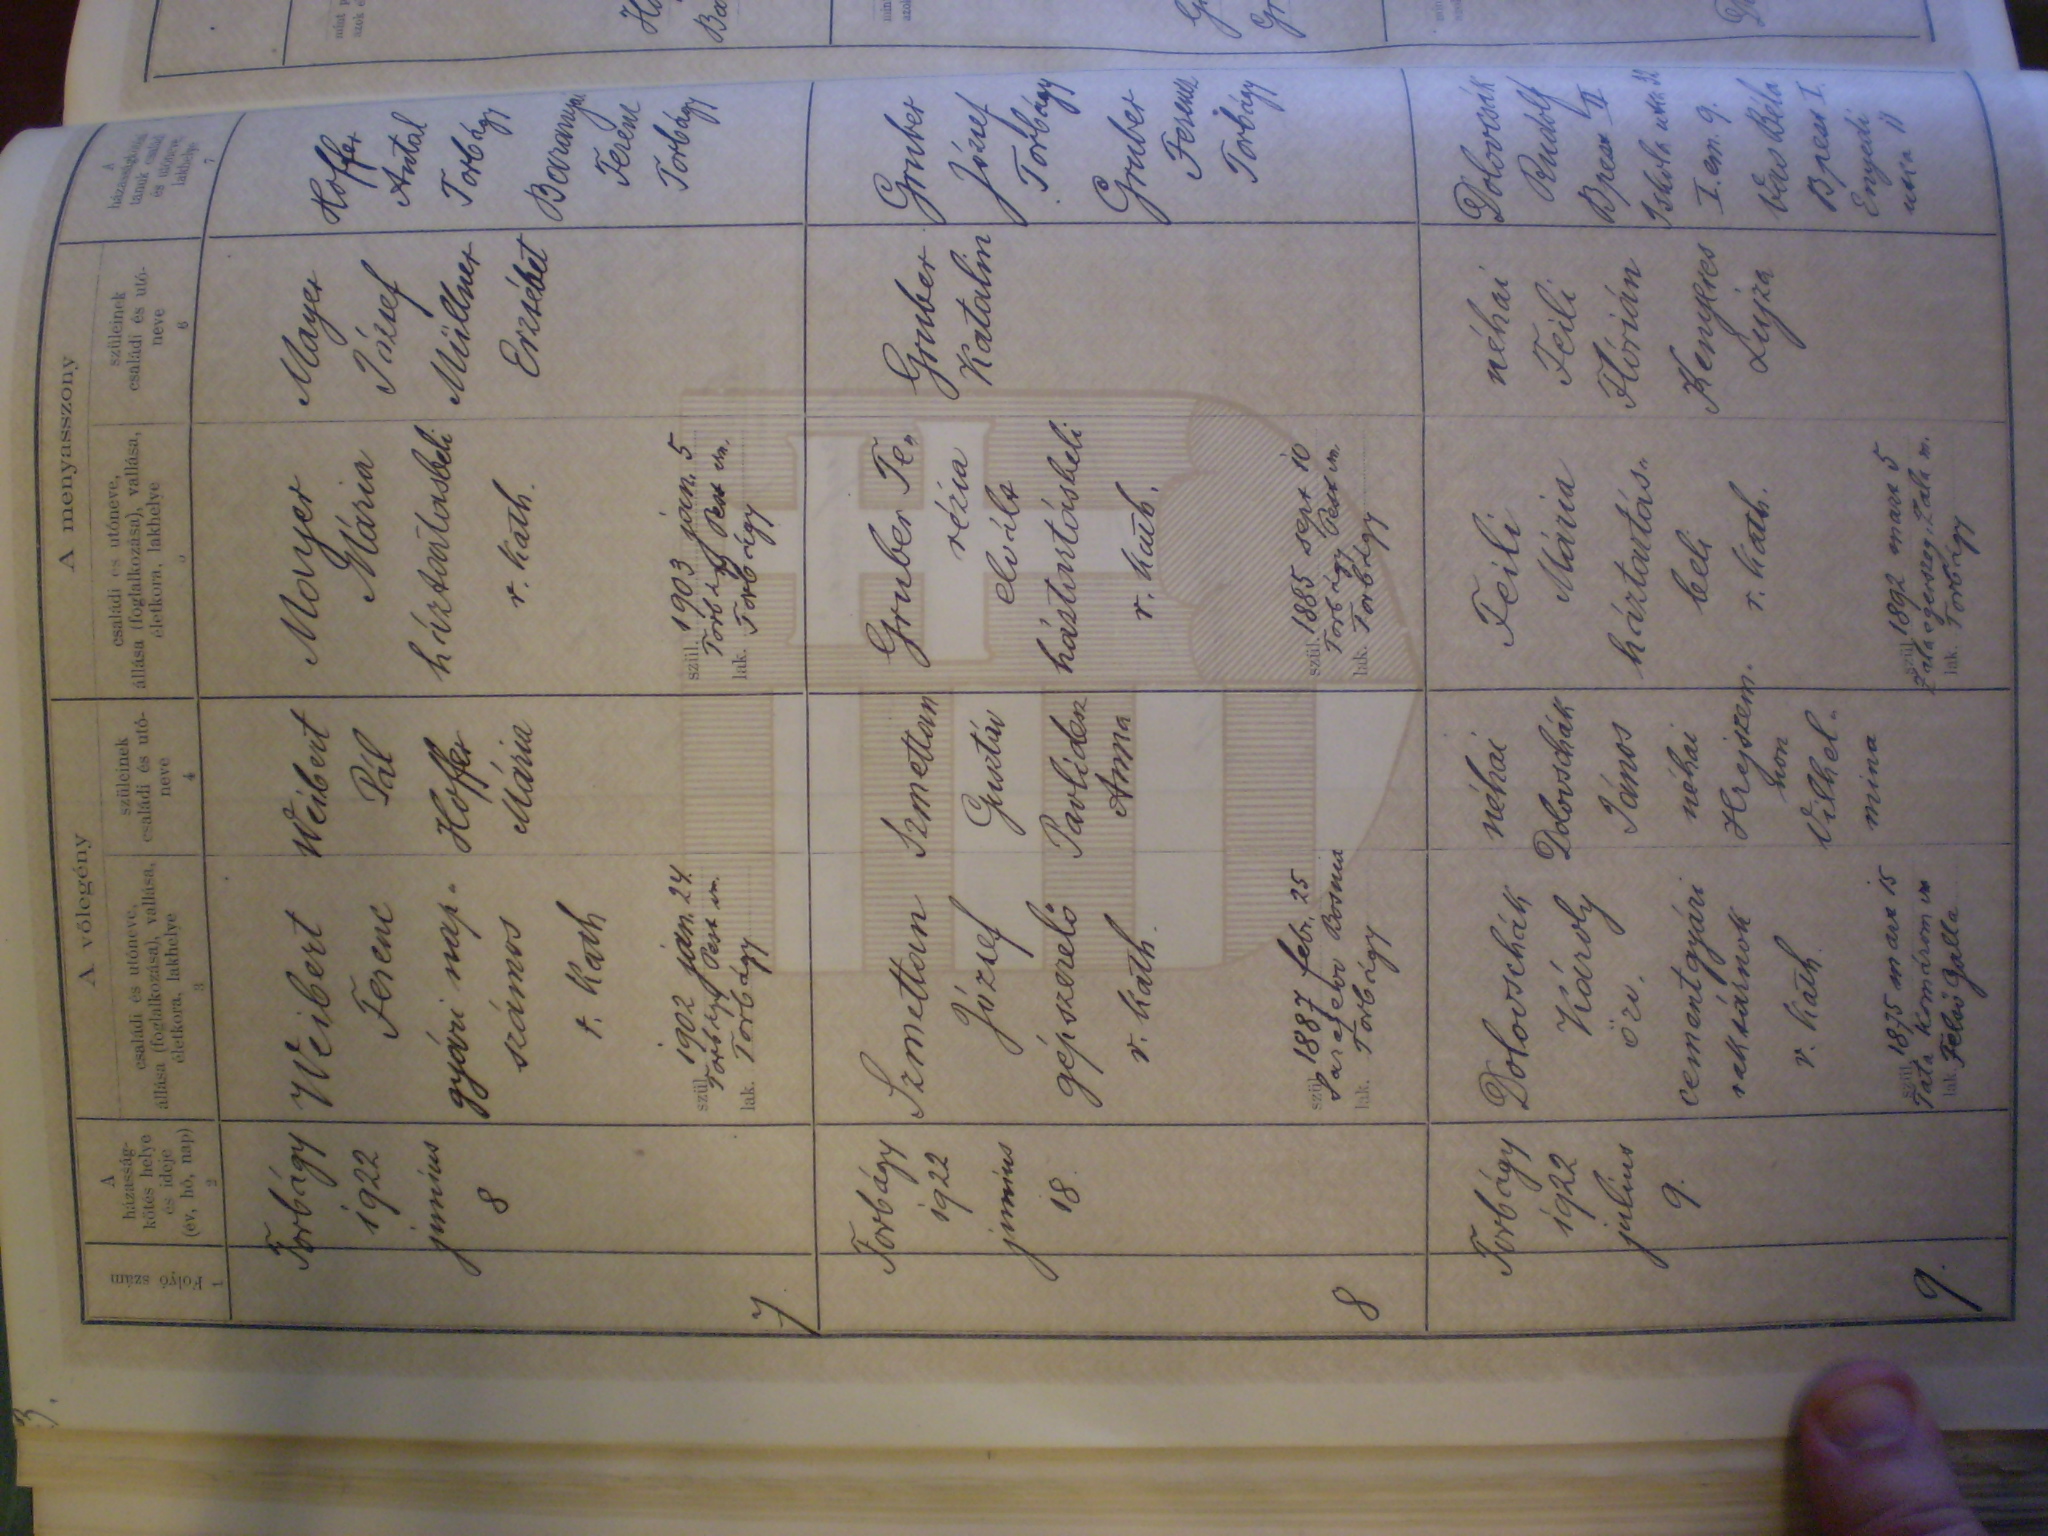 3.
A vőlegény
A menyasszony
Folyó szám
1
A
házasság-
kötés helye
és ideje
(év, hó, nap)
2
családi és utóneve,
állása (foglalkozása), vallása,
életkora, lakhelye
3
szüleinek
családi és utó-
neve
4
családi és utóneve,
állása (foglalkozása), vallása,
életkora, lakhelye
szüleinek
családi és utó-
neve
6
A
házasságkötési
tanuk családi
és utóneve,
lakhelye
7
7
Torbágy
1922
június
8
Weibert
Ferenc
gyári nap-
számos
r. kath
szül. 1902 ján. 24.
Torbágy Pest m.
lak. Torbágy
Weibert
Pál
Hoffer
Mária
Mayer
Mária
háztartásbeli
r. kath.
szül. 1903 ján. 5
Torbágy Pest vm.
lak. Torbágy
Mayer
József
Müllner
Erzsébet
Hoffer
Antal
Torbágy
Baranyai
Ferenc
Torbágy
8
Torbágy
1922
június
18
Szmettan
József
gépszerelő
r. kath.
szül. 1887 febr. 25
Sarajevo Bosnia
lak. Torbágy
Szmettan
Gusztáv
Anna
Gruber Te„
rézia
elvált
háztartásbeli
r. kath.
szül. 1885 sept 10
Torbágy Pest vm.
lak. Torbágy
Gruber
Katalin
Gruber
József
Torbágy
Gruber
Ferenc
Torbágy
9.
Torbágy
1922
július
9.
Dolovschák
Károly
özv.
cementgyári
raktárnok
r. kath.
szül. 1875 márc 15
Tata Komárom vm
lak. Felső Galla
néhai
Dolovschák
János
néhai
Vilhel-
mina
Feili
Mária
háztartás„
beli
r. kath.
szül. 1892 márc 5
Zalaegerszeg. Zala m.
lak. Torbágy
néhai
Feili
Flórián
Kenyeres
Lujza
Dolovcsák
Rudolf
Bpest II
Iskola utca 32
I. em. 9.
Vas Béla
Bpest I.
Enyedi
utca 11